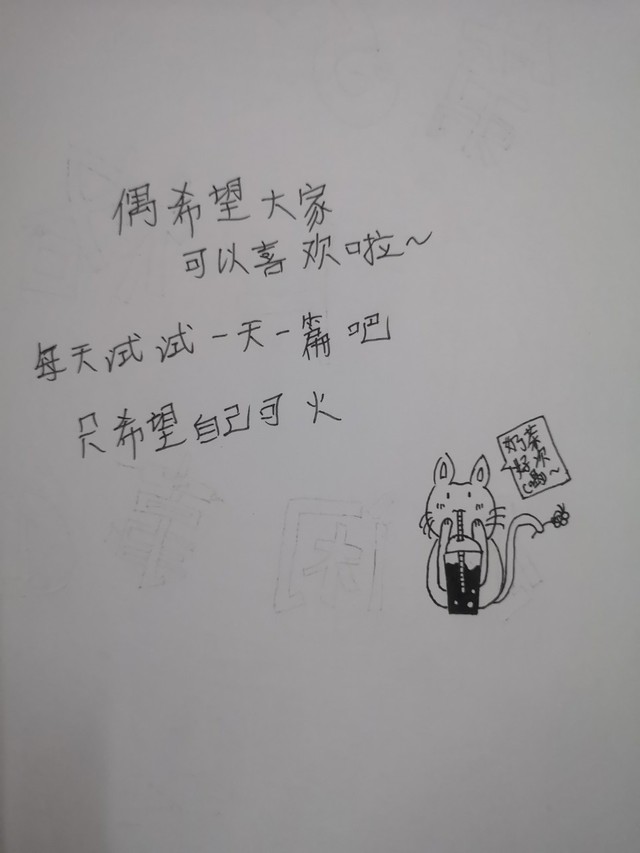 偶希望大家
可以喜欢啦～
每天试试一天一篇吧
只希望自己可火
奶茶
好次